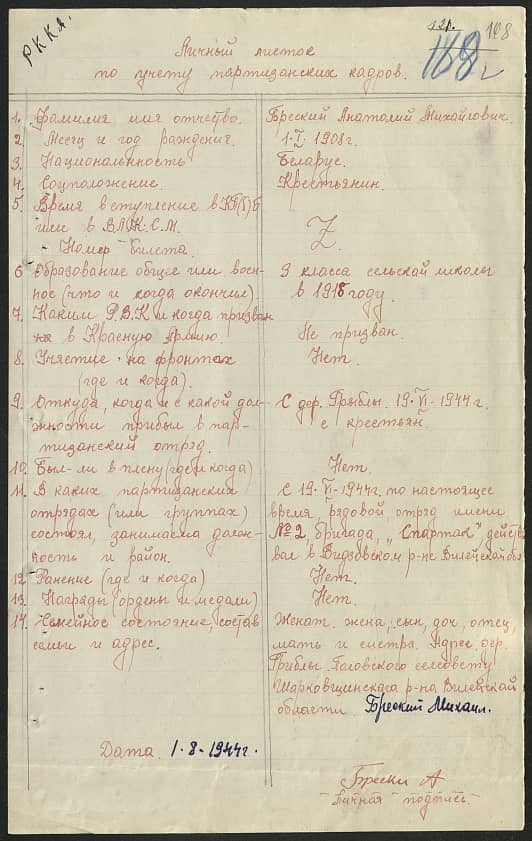 РККА.
121.
168
188 г
Личный листок
по учету партизанских кадров.
1. Фамилия имя отчество. Бреский Анатолий Михайлович.
2. Месяц и год раждения. 1·I. 1908г.
3. Национальность Беларус.
4. Соцположение. Крестьянин.
5. Время вступление в КП(б)Б
или в ВЛКСМ. Z.
- Номер билета.
6 Образование общее или воен- 3 класса сельской школы
ное (что и когда окончил). в 1918 году.
7. Каким Р.В.К и когда призван
в Красную Армию. Не призван.
8. Участие на фронтах Нет.
(где и когда).
9. Откуда, когда и с какой дол- С дер. Грыблы. 19·VI·1944 г.
жности прибыл в пар- с крестьян.
тизанский отряд.
10. Был-ли в плену (где и когда) Нет.
11. В каких партизанских С 19·VI-1944г. по настоящее
отрядах (или группах) время рядовой отряд имени
состоял, занимаема долж- №2 бригада, "Спартак" действо
ность и район. вал в Видзовском р-не Вилейской обл
12 Ранение (где и когда) Нет.
13. Награды (ордены и медали) Нет.
14. Семейное состояние, состав Женат. жена, сын, доч, отец,
семьи и адрес. мать и систра. Адрес дер.
Грыблы. сельсовету
Шарковщинскага р-на Вилейской
области. Бреский Михаил.
Дата. 1·8·1944г.
Брески А
Личная подпись